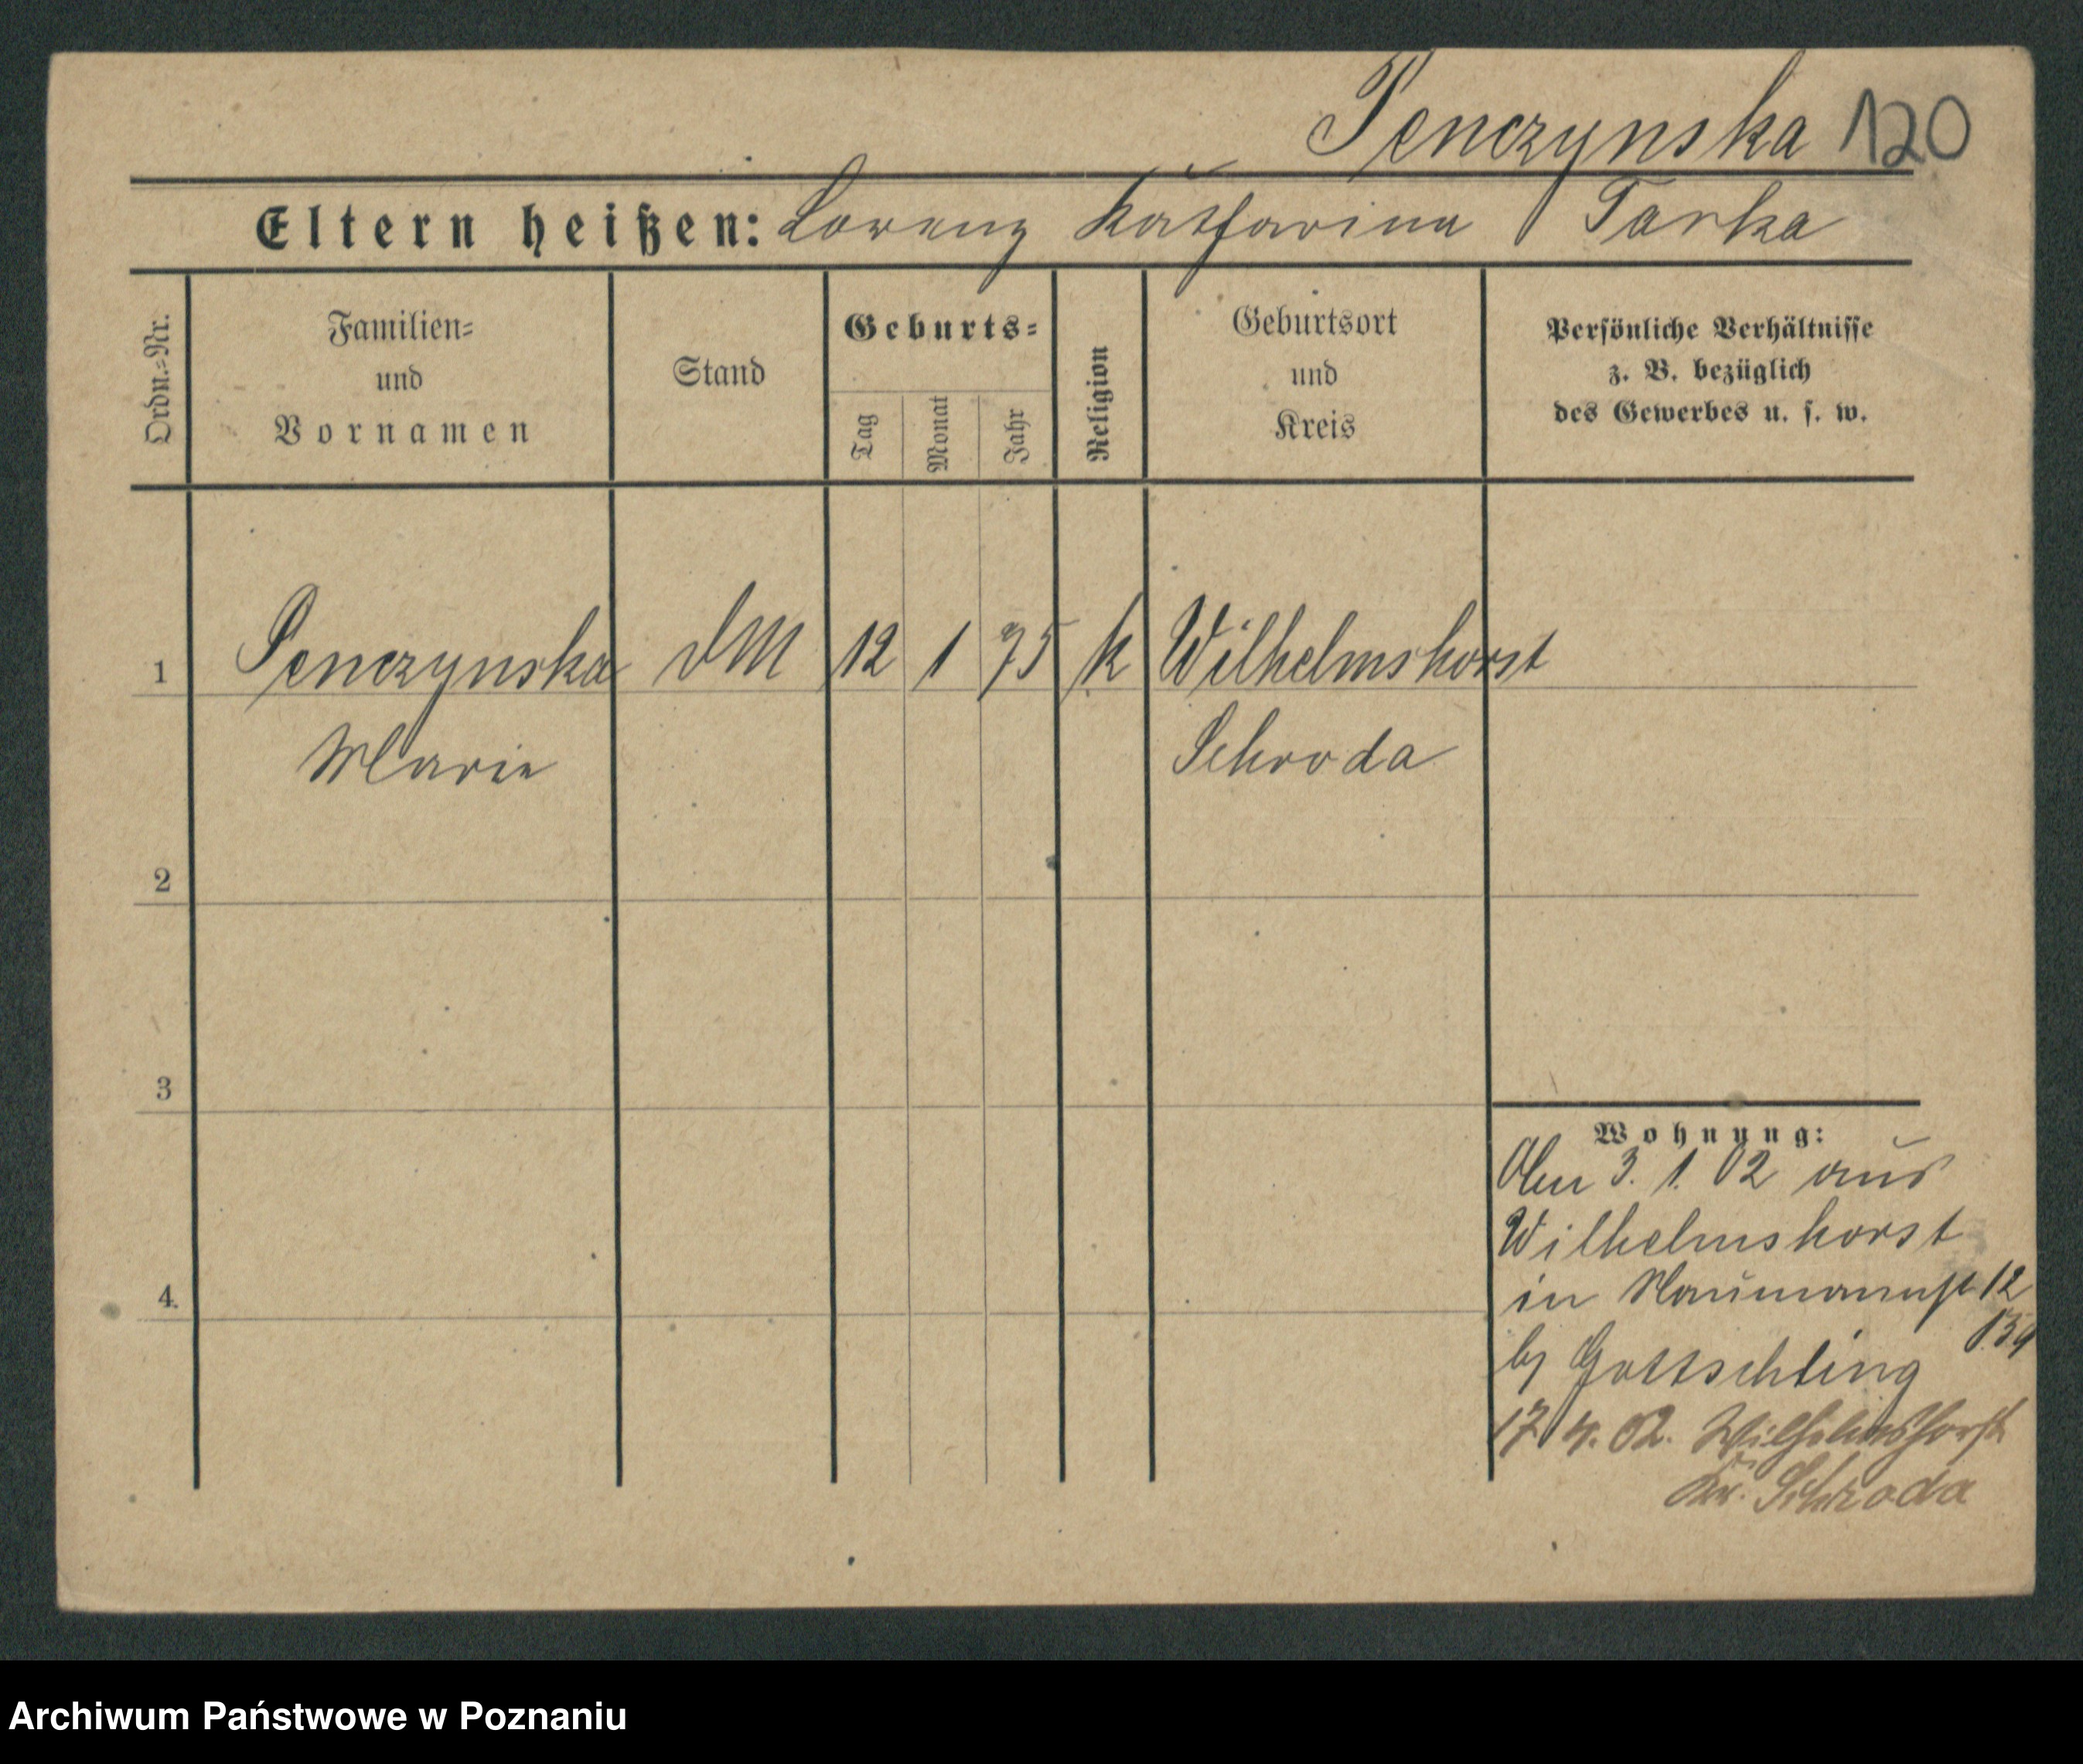 Penczynska 120
Eltern heißen: Lorenz Katharina / Tarka
Ordn.=Nr.
Familien=
und
Vornamen
Stand
Geburts=
Tag
Monat
Jahr
Religion
Geburtsort
und
Kreis
Persönliche Verhältnisse
z. B. bezüglich
des Gewerbes u. s. w.
1 Penczynska DM 12 1 75 k Wilhelmshorst
Marie Schroda
2
3
4
Wohnung:
3. 1. 02 aus
Wilhelmshorst
in Naumannst 12
by Gottschling
17/4. 02. Wilhelmshorst
Kr. Schroda
Archiwum Państwowe w Poznaniu